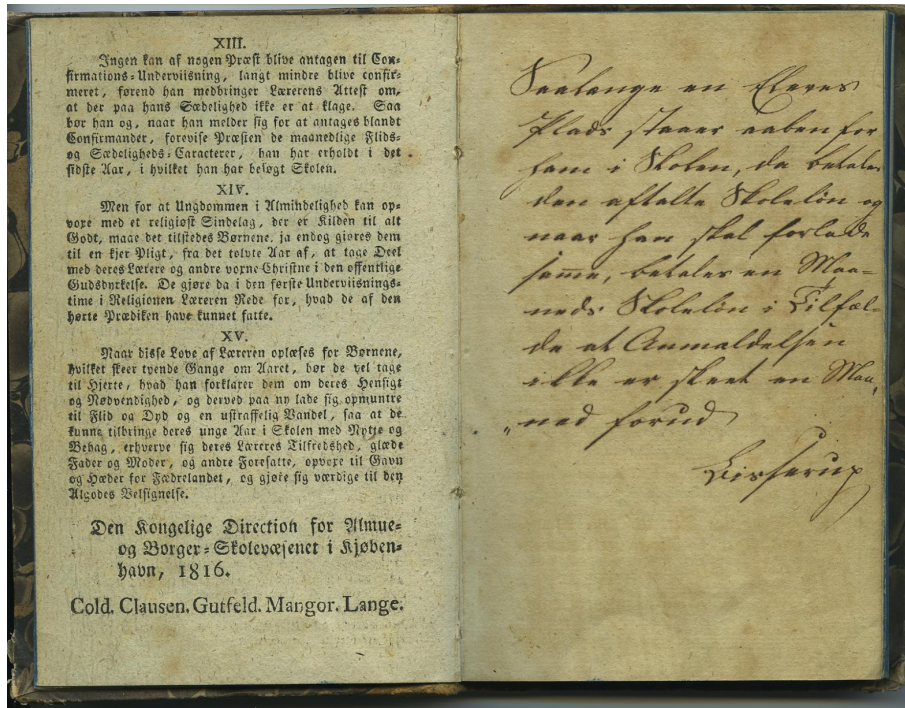 XIII.
Ingen kan af nogen Præst blive antagen til Con-
firmations-Underviisning, langt mindre blive confir-
meret, førend han medbringer Lærerens Attest om,
at der paa hans Sædelighed ikke er at klage. Saa
bør han og, naar han melder sig for at antages blandt
Confirmander, forevise Præsten de maanedlige Flids-
og Sædeligheds-Caracterer, han har erholdt i det
sidste Aar, i hvilket han har besøgt Skolen.
XIV.
Men for at Ungdommen i Almindelighed kan op-
voxe med et religiøst Sindelag, der er Kilden til alt
Godt, maae det tilstedes Børnene, ja endog gjøres dem
til en kjer Pligt, fra det tolvte Aar af, at tage Deel
med deres Lærere og andre voxne Christne i den offentlige
Gudsdyrkelse. De gjøre da i den første Underviisnings-
time i Religionen Læreren Rede for, hvad de af den
hørte Prædiken have kunnet fatte.
XV.
Naar disse Love af Læreren oplæses for Børnene,
hvilket skeer tvende Gange om Aaret, bør de vel tage
til Hjerte, hvad han forklarer dem om deres Hensigt
og Nødvendighed, og derved paa ny lade sig opmuntre
til Flid og Dyd og en ustraffelig Vandel, saa at de
kunne tilbringe deres unge Aar i Skolen med Nytte og
Behag, erhverve sig deres Læreres Tilfredshed, glæde
Fader og Moder, og andre Foresatte, opvoxe til Gavn
og Hæder for Fædrelandet, og gjøre sig værdige til den
Algodes Velsignelse.
Den Kongelige Direction for Almue-
og Borger-Skolevæsenet i Kjøben-
havn, 1816.
Cold. Clausen. Gutfeld. Mangor. Lange.
Saalænge en Eleves
Plads staaer aaben for
ham i Skolen, da betales
den aftalte Skoleløn og
naar han skal forlade
samme, betales en Maa-
neds Skoleløn i Tilfæl-
de at Anmeldelsen
ikke er skeet en Maa-
ned forud
Lisserup